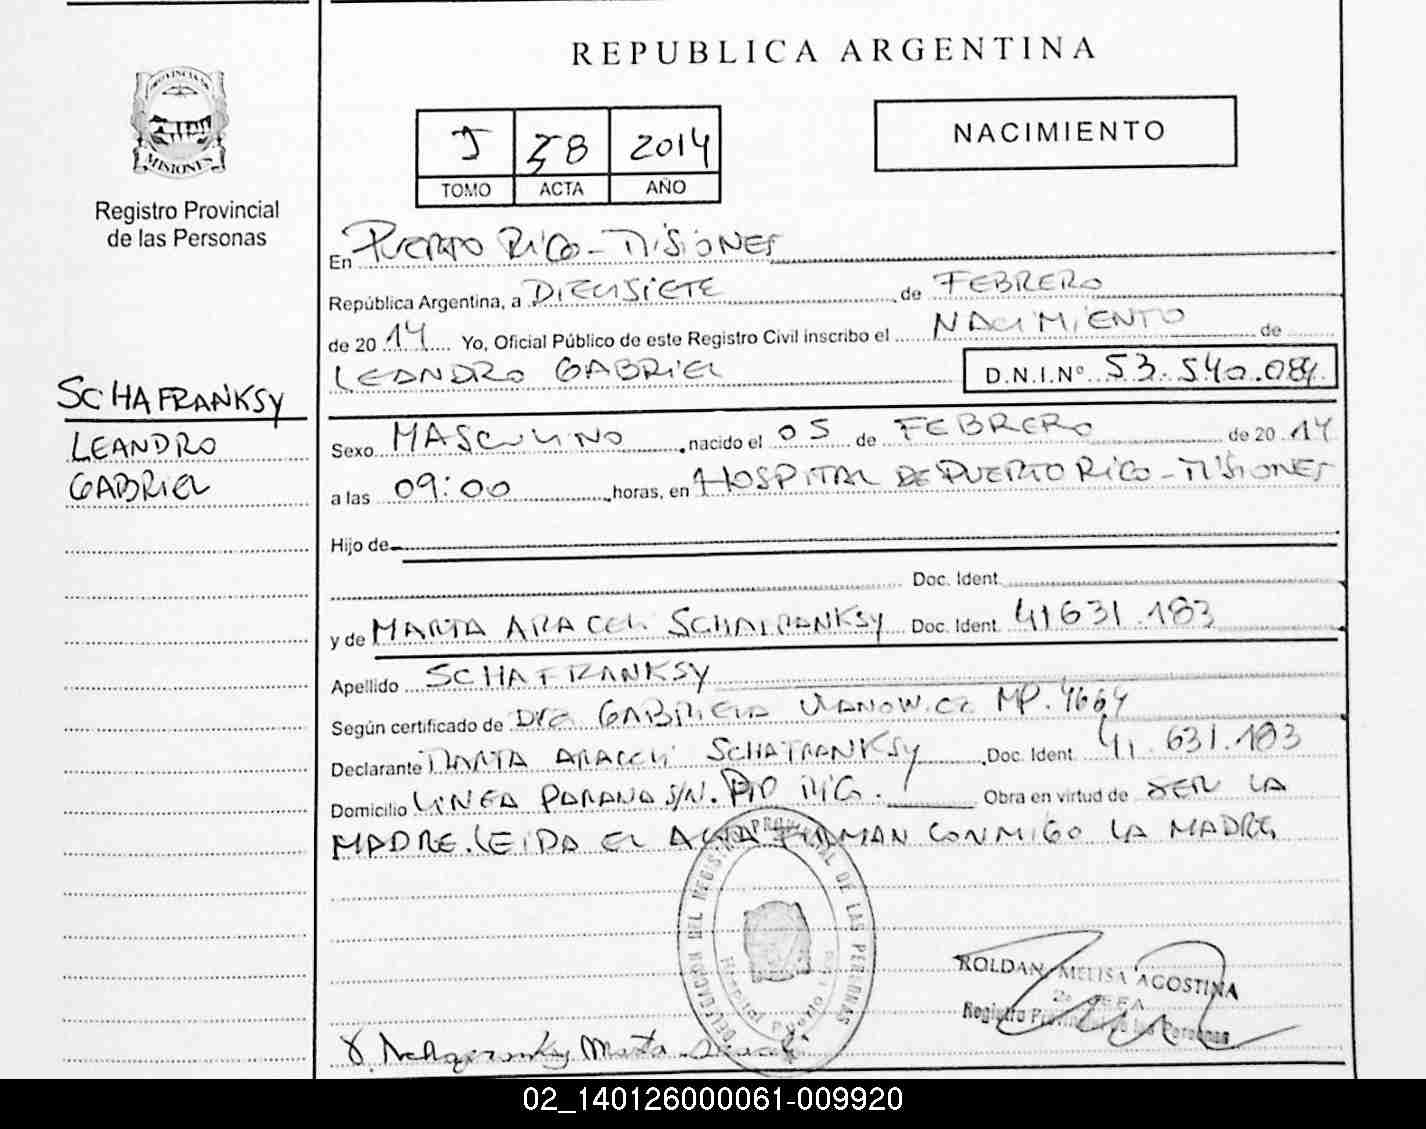 REPUBLICA ARGENTINA
PROVINCIA DE
MISIONES
Registro Provincial
de las Personas
J 78 2014
TOMO ACTA AÑO
NACIMIENTO
En PUERTO RICO - MISIONES
República Argentina, a DIECISIETE de FEBRERO
de 2014 Yo, Oficial Público de este Registro Civil inscribo el NACIMIENTO de
LEANDRO GABRIEL D.N.I.Nº 53.540.084
SCHAFRANKSY
LEANDRO
GABRIEL
Sexo MASCULINO, nacido el 05 de FEBRERO de 2014
a las 09:00, horas, en HOSPITAL DE PUERTO RICO - MISIONES
Hijo de
Doc. Ident.
y de MARTA ARACELI SCHAFRANKSY Doc. Ident. 41631.183
Apellido SCHAFRANKSY
Según certificado de DRA GABRIELA MP. 4664
Declarante MARTA ARACELI SCHAFRANKSY Doc. Ident. 41.631.183
Domicilio LINEA PARANA S/N. Obra en virtud de SER LA
MADRE. LEIDA EL ACTA FIRMAN CONMIGO LA MADRE
DELEGACION DEL REGISTRO PROVINCIAL DE LAS PERSONAS
Hospital Puerto Rico
ROLDAN, MELISA AGOSTINA
2º JEFA
Registro Provincial de las Personas
Marta
02_140126000061-009920